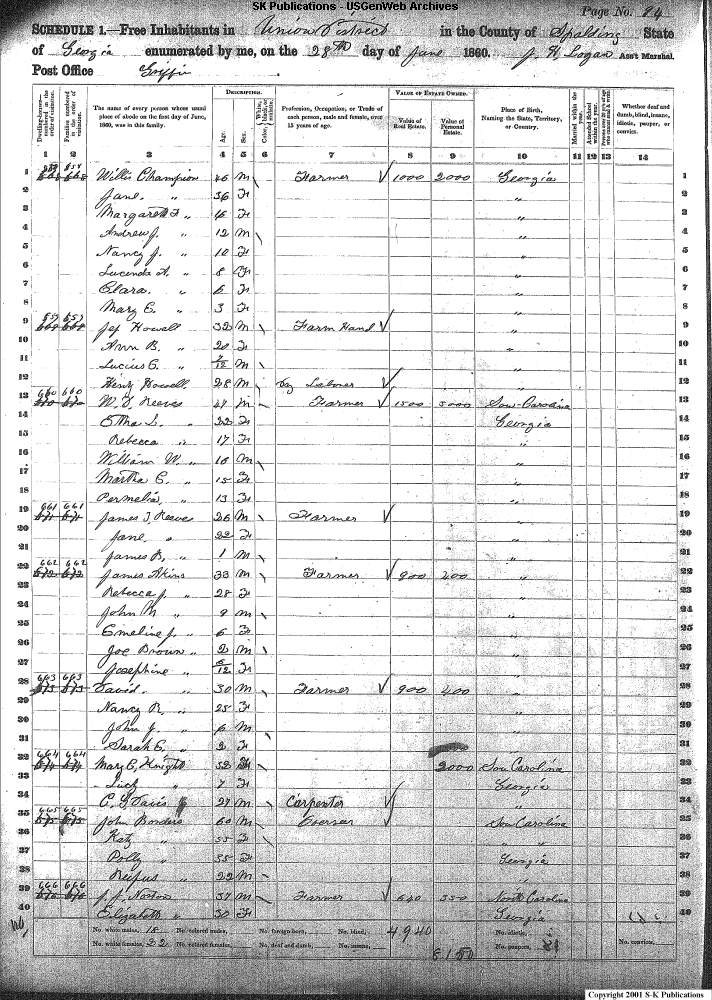 SK Publications - USGenWeb Archives
Page No. 84
SCHEDULE 1.—Free Inhabitants in Union District in the County of Spalding State
of Georgia enumerated by me, on the 28th day of June 1860. J. H. Logan Ass't Marshal.
Post Office Griffin
DESCRIPTION. VALUE OF ESTATE OWNED.
Dwelling-houses—numbered in the order of visitation.
Families numbered in the order of visitation.
The name of every person whose usual place of abode on the first day of June, 1860, was in this family.
Age. Sex. Color,
Profession, Occupation, or Trade of each person, male and female, over 15 years of age.
Value of Real Estate. Value of Personal Estate.
Place of Birth, Naming the State, Territory, or Country.
Married within the year. Attended School within the year.
Whether deaf and dumb, blind, insane, idiotic, pauper, or convict.
1 2 3 4 5 6 7 8 9 10 11 12 13 14
1 Willis Champion 46 M Farmer 1000 2000 Georgia 1
2 Jane. " 36 F " 2
3 Margarett F " 16 F " 3
4 Andrew J. " 12 M " 4
5 Nancy J. " 10 F " 5
6 Lucenda A. " 8 F " 6
7 Clara. " 6 F " 7
8 Mary E. " 3 F " 8
9 659 659 Jef Howell 32 M Farm Hand " 9
10 Ann B. " 20 F " 10
11 Lucius C. " M " 11
12 Henry Howell 28 M Day Laborer " 12
13 660 660 W. T. Reeves 47 M Farmer 1500 5000 Sou-Carolina 13
14 22 F Georgia 14
15 Rebecca " 17 F " 15
16 William W. " 16 M " 16
17 Martha C. " 15 F " 17
18 Permelia, " 13 F " 18
19 661 661 James T. Reeves 26 M Farmer " 19
20 Jane " 22 F " 20
21 James R. " 1 M " 21
22 662 662 James Akins 33 M Farmer 900 200 " 22
23 Rebecca J. " 28 F " 23
24 John " 9 M " 24
25 Emeline J. " 6 F " 25
26 Joe Brown " 2 M " 26
27 Josephine " F " 27
28 663 663 David. " 30 M Farmer 900 400 " 28
29 Nancy R. " 25 F " 29
30 John J " 6 M " 30
31 Sarah E, " 2 F " 31
32 664 664 Mary E, Knight 52 F 2000 Sou Carolina 32
33 Lucy " 7 F Georgia 33
34 Davis 27 M Carpenter " 34
35 665 665 John Borders 60 M Oversear Sou Carolina 35
36 Katy " 55 F " " 36
37 Polly " 35 F Georgia 37
38 Rufus " 22 M " 38
39 666 666 J. J. Norton 37 M Farmer 640 550 North Carolina 39
40 Elizabeth " 30 F Georgia 40
No. white males, 18 No. colored males, No. foreign born, No. blind, 4940 No. idiotic,
No. white females, 22 No. colored females, No. deaf and dumb, No. insane, No. paupers, No. convicts,
Copyright 2001 S-K Publications